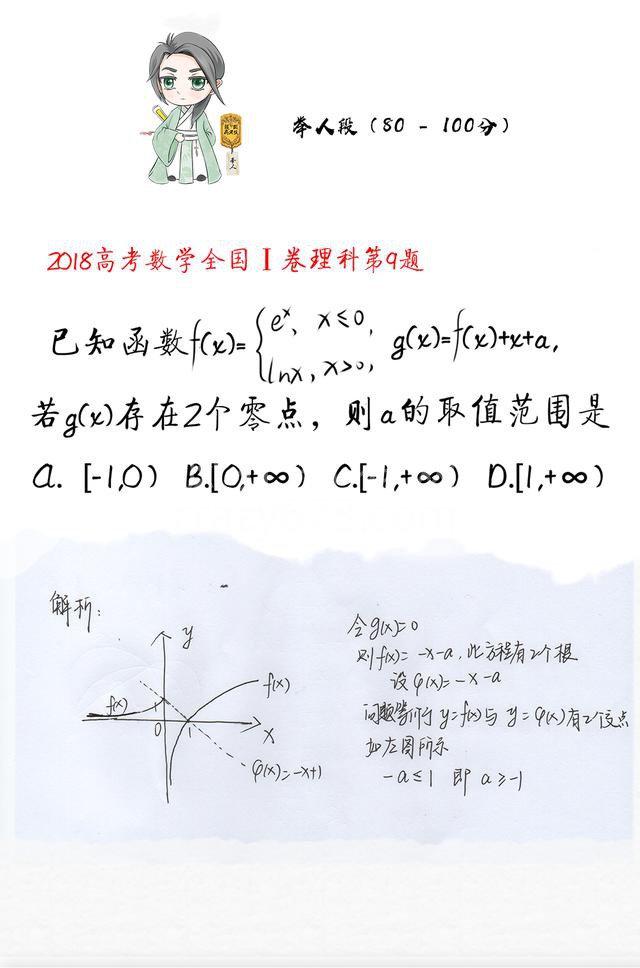 举人段（80 - 100分）
举人
2018高考数学全国Ⅰ卷理科第9题
已知函数f(x)={eˣ, x≤0, lnx, x>0, g(x)=f(x)+x+a,
若g(x)存在2个零点，则a的取值范围是
A. [-1,0) B.[0,+∞) C.[-1,+∞) D.[1,+∞)
解析:
y
f(x)
1
f(x)
0
1
x
φ(x)=-x+1
令g(x)=0
则f(x)= -x-a, 此方程有2个根
设 φ(x)=-x-a
问题等价于 y=f(x)与 y=φ(x)有2个交点
如左图所示
-a≤1 即 a≥-1